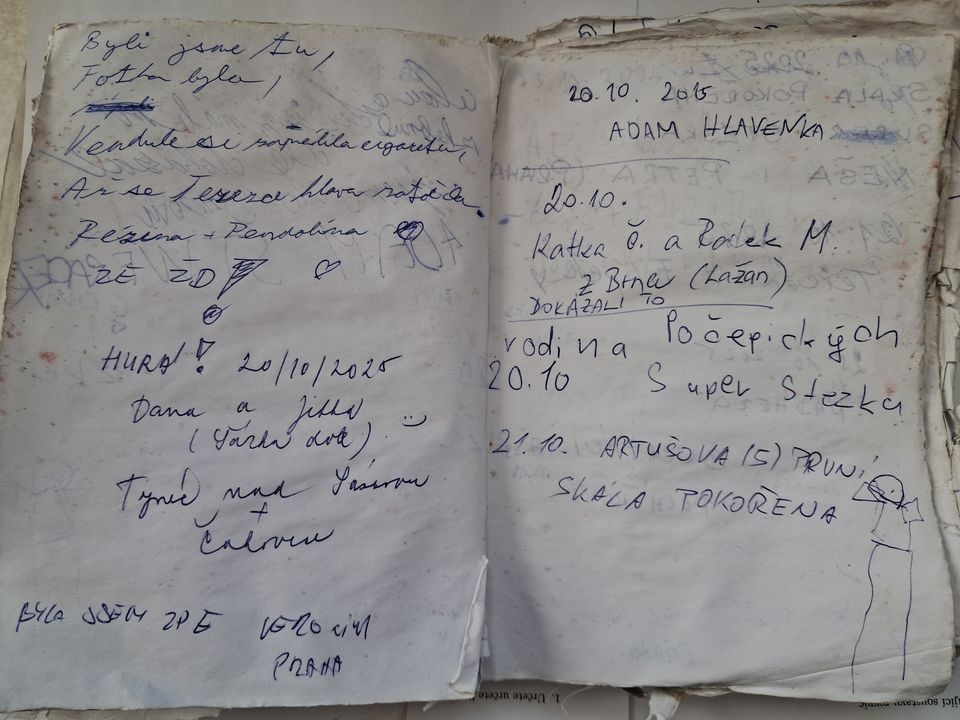 Byli jsme tu,
Fotka byla,
Vendule si zapálila cigaretu,
Až se Tereze hlava zatočila.
+ Pendolína
ZE ŽĎ
HURÁ! 20/10/2025
Dana a Jitka
(Šárka dole) :-)
Týnec nad Sázavou
+
Čakovice
BYLA JSEM
PRAHA
20.10. 2015
ADAM HLAVENKA
20.10.
Katka Č. a Radek M.
z Brna (Lažan)
DOKÁZALI TO
rodina Počepických
20.10 Super Stezka
21.10. ARTUŠOVA (5) PRVNÍ
SKÁLA POKOŘENA
1. Určete určete